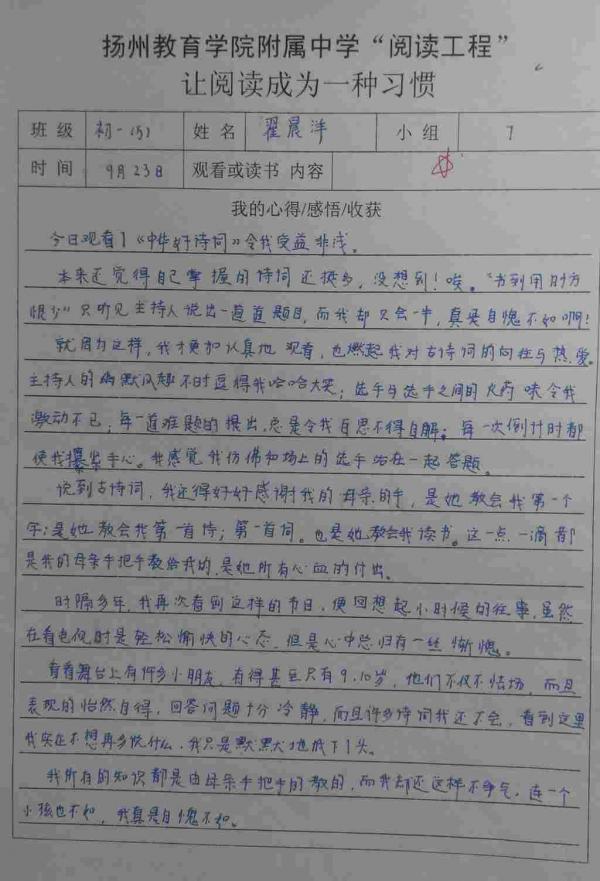 扬州教育学院附属中学“阅读工程”
让阅读成为一种习惯
班 级 初一(5) 姓 名 翟晨洋 小 组 7
时 间 9月23日 观看或读书 内容
我的心得/感悟/收获
今日观看了《中华好诗词》令我受益非浅。
本来还觉得自己掌握的诗词还挺多，没想到！唉。“书到用时方
恨少”只听见主持人说出一道道题目，而我却只会一半，真是自愧不如啊！
就因为这样，我才更加认真地观看，也燃起我对古诗词的向往与热爱。
主持人的幽默风趣不时逗得我哈哈大笑；选手与选手之间的火药味令我
激动不已；每一道难题的提出，总是令我百思不得自解；每一次倒计时都
使我攥紧手心。我感觉我仿佛和场上的选手站在一起答题。
说到古诗词，我还得好好感谢我的母亲的手，是她教会我第一个
字；是她教会我第一首诗；第一首词。也是她教会我读书。这一点一滴都
是我的母亲手把手教给我的，是她所有心血的付出。
时隔多年，我再次看到这样的节目，便回想起小时候的往事，虽然
在看电视时是轻松愉快的心态，但是心中总归有一丝惭愧。
看着舞台上有许多小朋友，有得甚至只有9、10岁，他们不仅不怯场，而且
表现的怡然自得，回答问题十分冷静，而且许多诗词我还不会，看到这里
我实在不想再多说什么，我只是默默地低下了头。
我所有的知识都是由母亲手把手的教的，而我却还这样不争气，连一个
小孩也不如，我真是自愧不如。